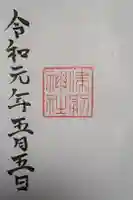 令和元年五月五日
神社